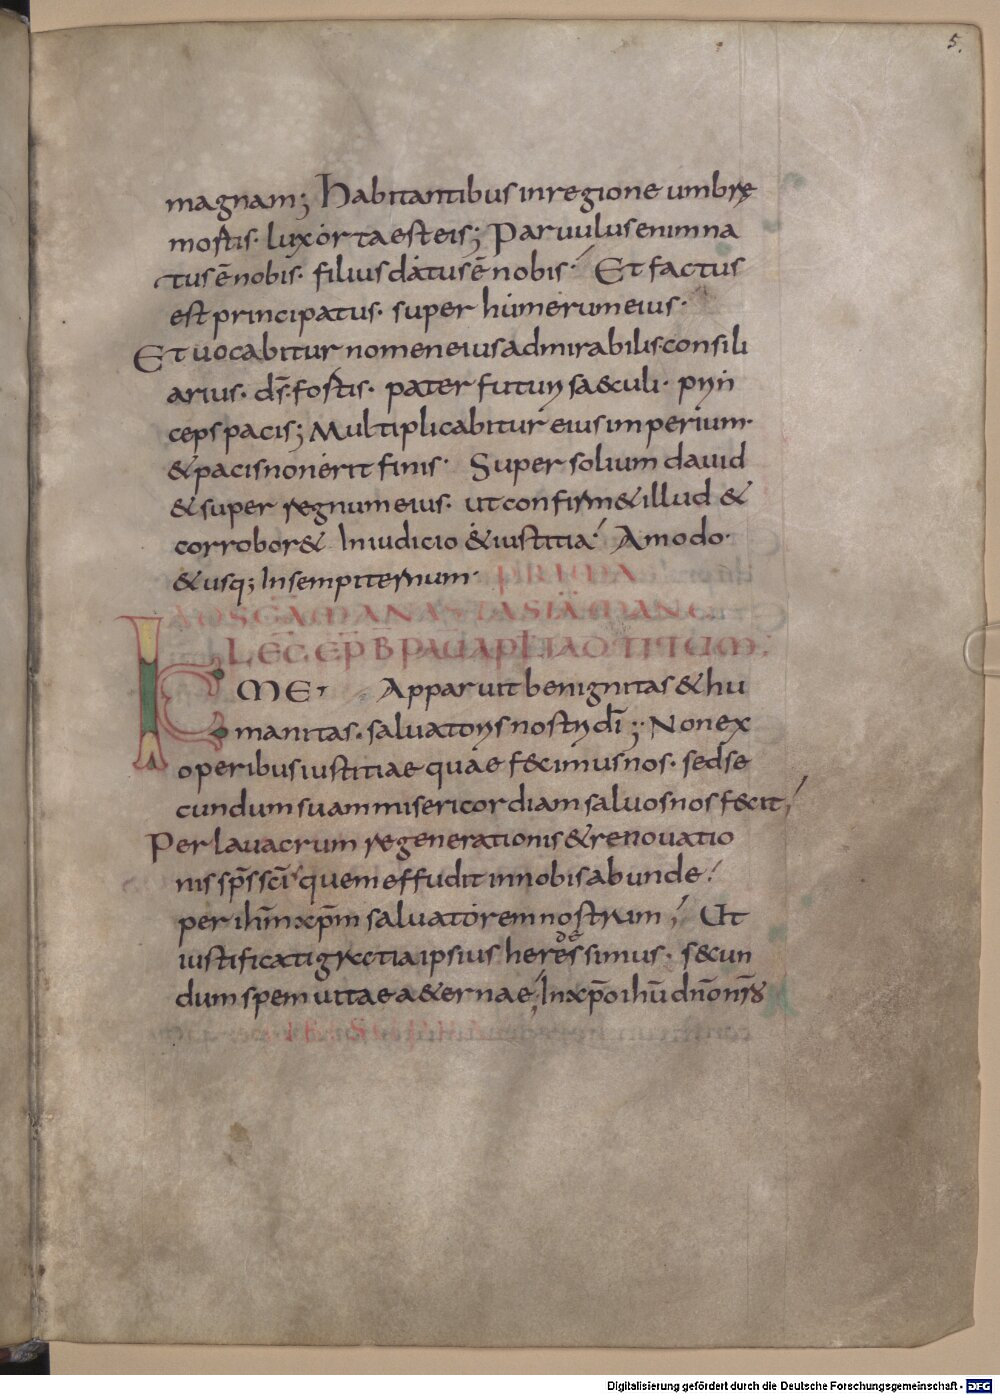 5.
magnam; Habitantibus in regione umbrę
mortis· lux orta est eis; Paruulus enim na
tus ē nobis· filius datus ē nobis· Et factus
est principatus· super humerum eius·
Et uocabitur nomen eius admirabilis consili
arius· d̄s· fortis· pater futuri saeculi· prin
ceps pacis; Multiplicabitur eius imperium·
& pacis non erit finis· Super solium dauid
& super regnum eius· ut confirm& illud &
corrobor& In iudicio & iustitia· Amodo·
& usq; In sempiternum·
PRIMA
AD SC̄AM ANASTASIAM MANE
LEC̄ EP̄ B PAULI APLI AD TITUM·
KME· Apparuit benignitas & hu
manitas· saluatoris nostri dī; Non ex
operibus iustitiae quae fecimus nos· sed se
cundum suam misericordiam saluos nos fecit;
Per lauacrum regenerationis & renouatio
nis sp̄s sc̄i quem effudit in nobis abunde·
per ihm̄ xp̄m saluatorem nostrum; Ut
iustificati gratia ipsius heredes simus· secun
dum spem uitae aeternae; In xp̄o ihū dn̄o
Digitalisierung gefördert durch die Deutsche Forschungsgemeinschaft - DFG